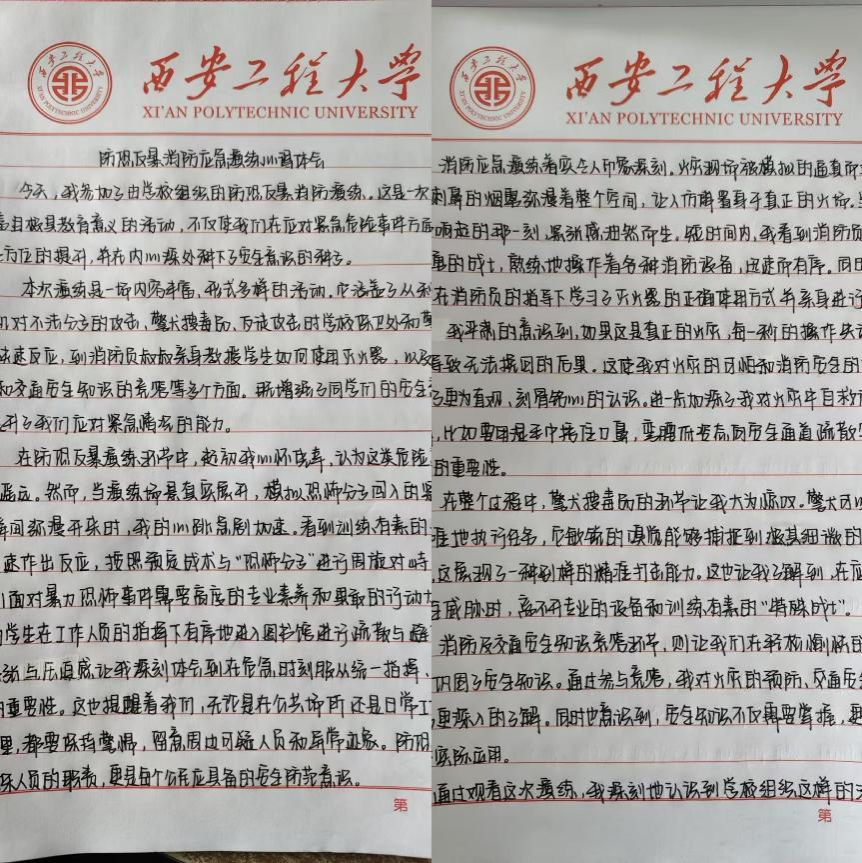 西安工程大学
XI'AN POLYTECHNIC UNIVERSITY
防恐反暴消防应急演练心得体会
今天，我参加了由学校组织的防恐反暴消防演练。这是一次
且极具教育意义的活动，不仅使我们在应对紧急危险事件方面
方位的提升，并在内心深处种下了安全意识的种子。
本次演练是一场内容丰富，形式多样的活动。它涵盖了从
对不法分子的攻击，警犬搜毒品、反徒攻击时学校保卫处和
快速反应，到消防员叔叔亲身教授学生如何使用灭火器，以及
和交通安全知识的竞答等多个方面。既增强了同学们的安全
升了我们应对紧急情况的能力。
在防恐反暴演练环节中，起初我心怀侥幸，认为这类危险
遥远。然而，当演练场景真实展开，模拟恐怖分子闯入的紧
瞬间弥漫开来时，我的心跳急剧加速。看到训练有素的
速作出反应，按照预定战术与“恐怖分子”进行周旋对峙
面对暴力恐怖事件需要高度的专业素养和果敢的行动
学生在工作人员的指挥下有序地进入图书馆进行疏散与避
张与压迫感让我深刻体会到在危急时刻服从统一指挥、
的重要性。这也提醒着我们，无论是在公共场所还是日常
里，都要保持警惕，留意周边可疑人员和异常迹象。防恐
人员的职责，更是每个公民应具备的安全防范意识。
第
西安工程大学
XI'AN POLYTECHNIC UNIVERSITY
消防应急演练着实令人印象深刻。火灾现场被模拟的逼真而
刺鼻的烟雾弥漫着整个空间，让人仿佛置身于真正的火场。
响起的那一刻，紧张感油然而生。短时间内，我看到消防员
的战士，熟练地操作着各种消防设备，迅速而有序。同
在消防员的指导下学习了灭火器的正确使用方式并亲身进行
我平静的意识到，如果这是真正的火灾，每一秒的操作失
导致无法挽回的后果。这使我对火灾的可怕和消防安全的
了更为直观、刻骨铭心的认识。进一步加深了我对火灾中自救
，比如要用湿毛巾捂住口鼻，弯腰而安高向安全通道疏散
的重要性。
在整个过程中，警犬搜毒品的环节让我大为惊叹。警犬可以
准地执行任务，它敏锐的嗅觉能够捕捉到极其细微的
这展现了一种别样的精准打击能力。这也让我了解到，在应
威胁时，离不开专业的设备和训练有素的“特殊战士”。
消防及交通安全知识竞答环节，则让我们在轻松愉快的
巩固了安全知识。通过参与竞答，我对火灾的预防、交通安
更深入的了解。同时也意识到，安全知识不仅需要掌握，更
实际应用。
通过观看这次演练，我深刻地认识到学校组织这样的
第